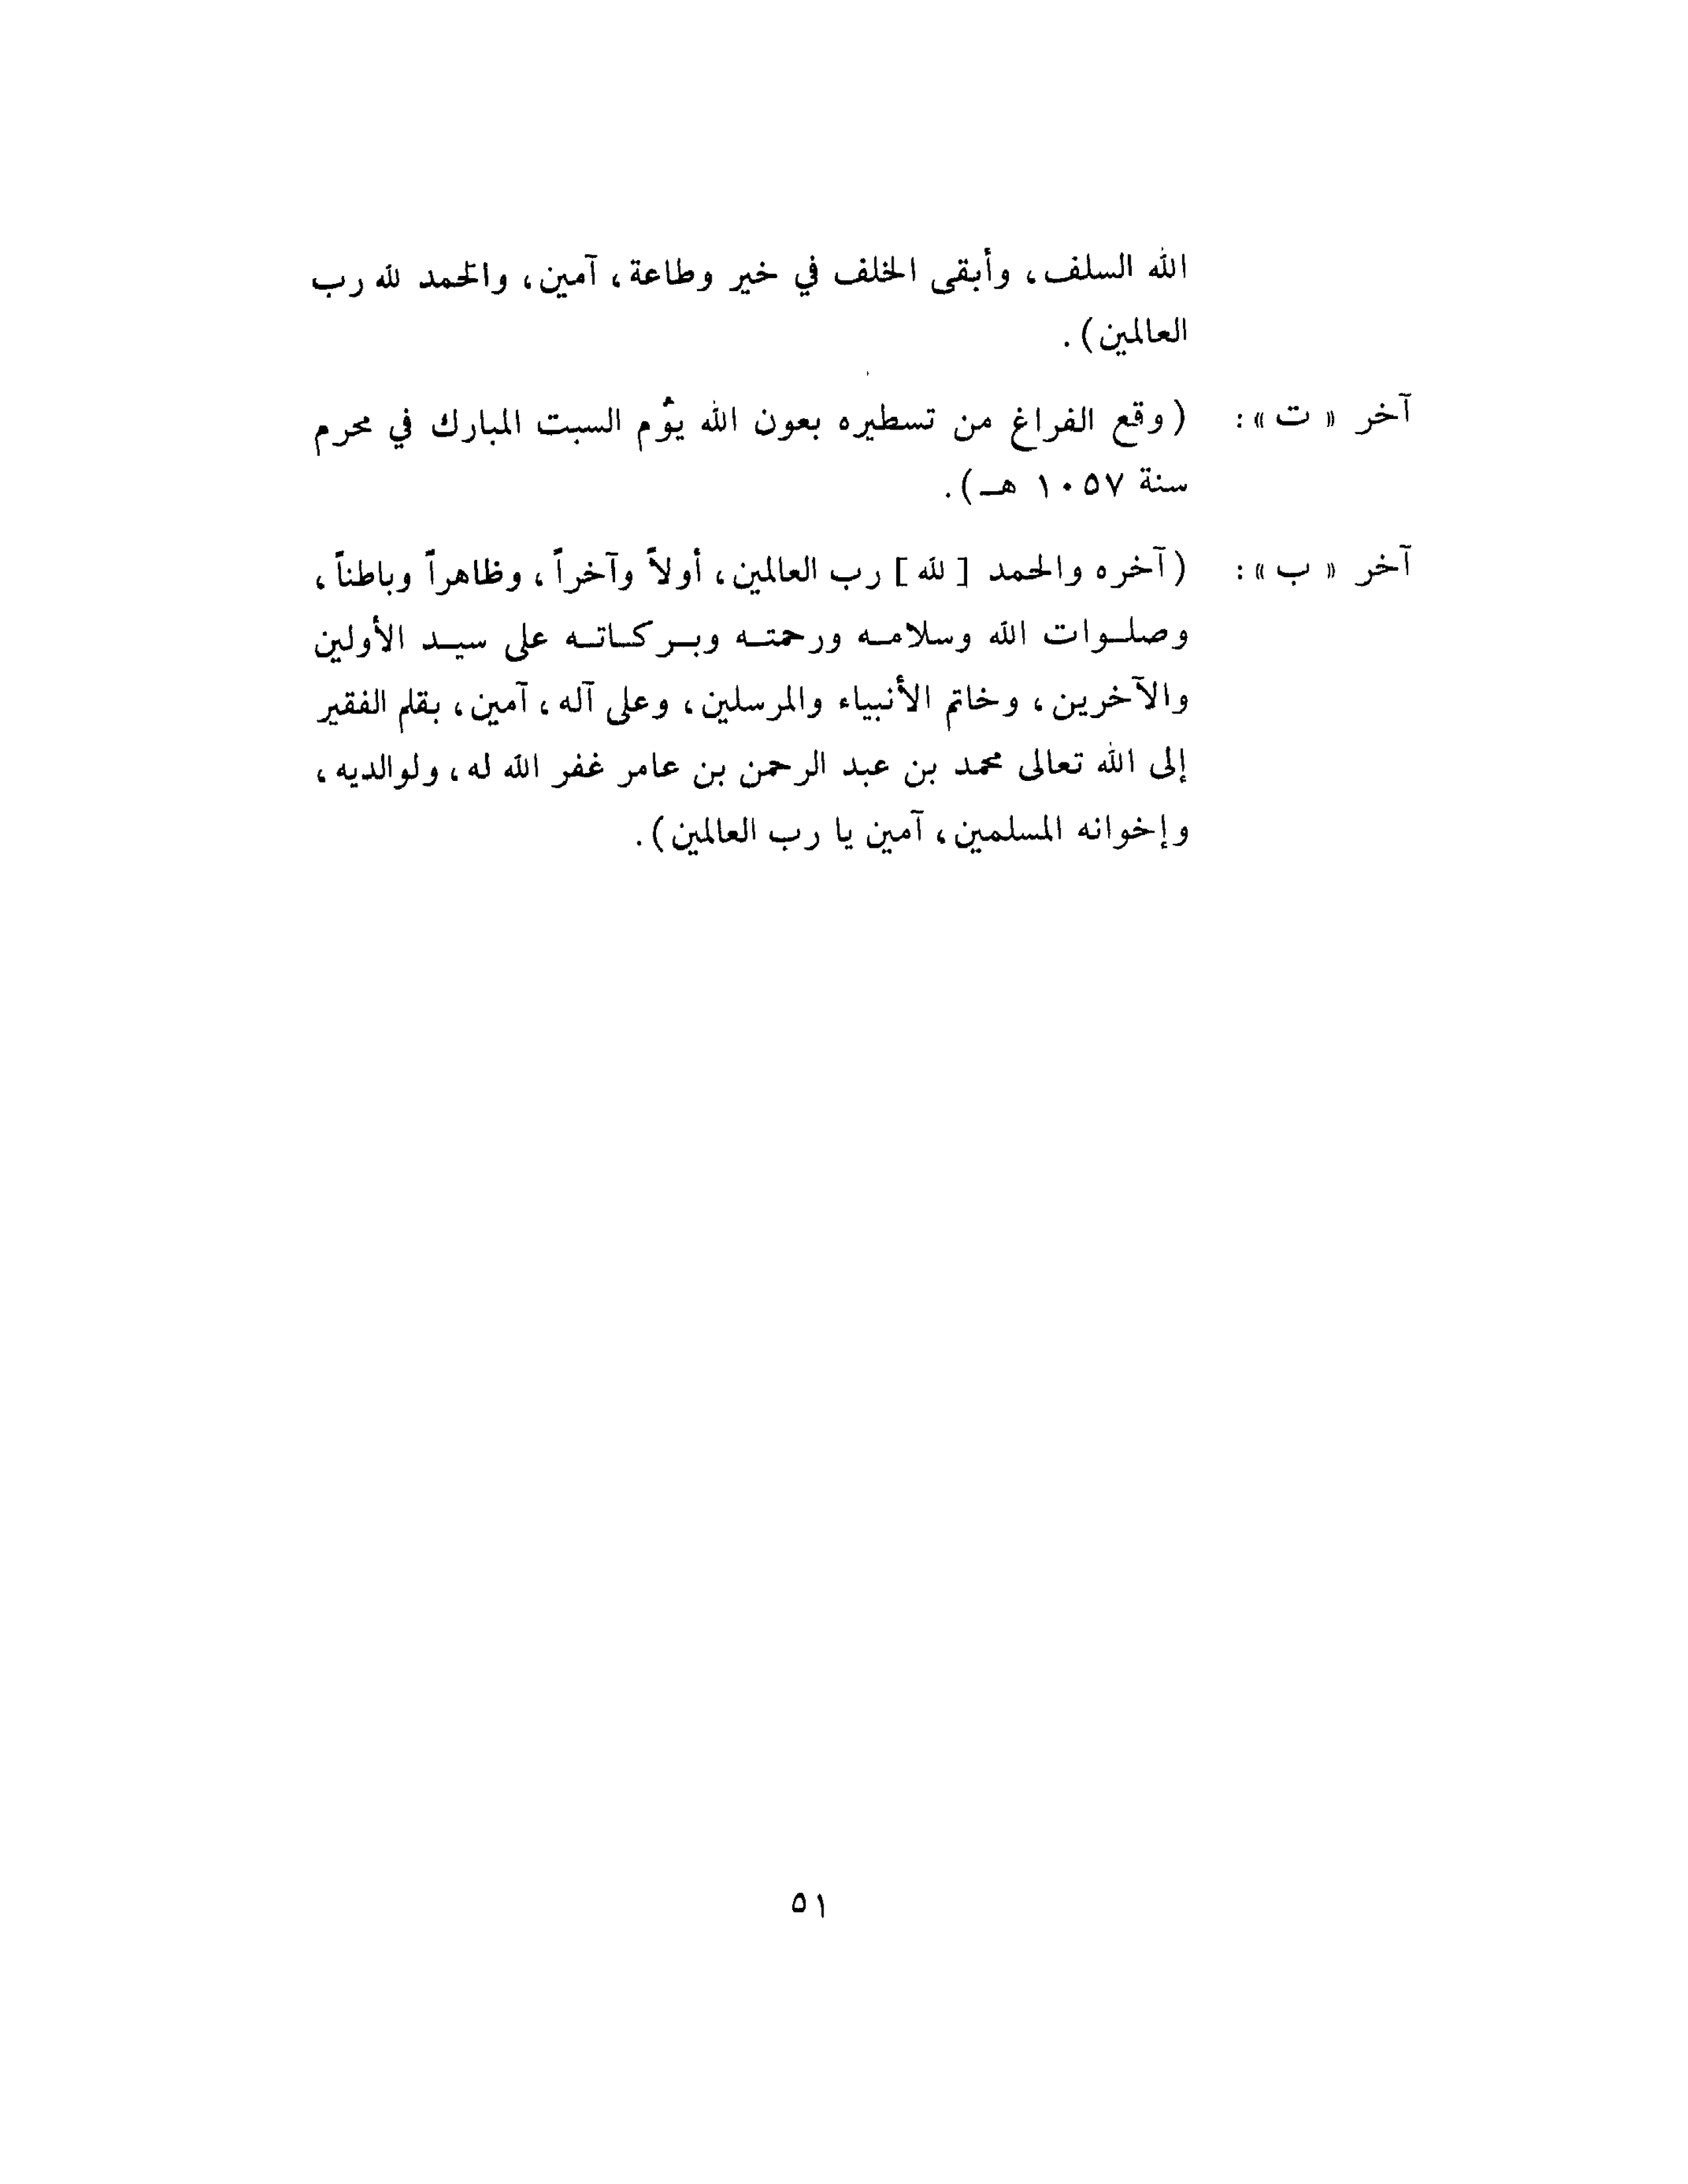 الله السلف، وأبقى الخلف في خير وطاعة، آمين، والحمد لله رب
العالمين).
آخر «ت»: (وقع الفراغ من تسطيره بعون الله يوم السبت المبارك في محرم
سنة ١٠٥٧ هـ).
آخر «ب»: (آخره والحمد [لله] رب العالمين، أولاً وآخراً، وظاهراً وباطناً،
وصلوات الله وسلامه ورحمته وبركاته على سيد الأولين
والآخرين، وخاتم الأنبياء والمرسلين، وعلى آله، آمين، بقلم الفقير
إلى الله تعالى محمد بن عبد الرحمن بن عامر غفر الله له، ولوالديه،
وإخوانه المسلمين، آمين يا رب العالمين).
٥١